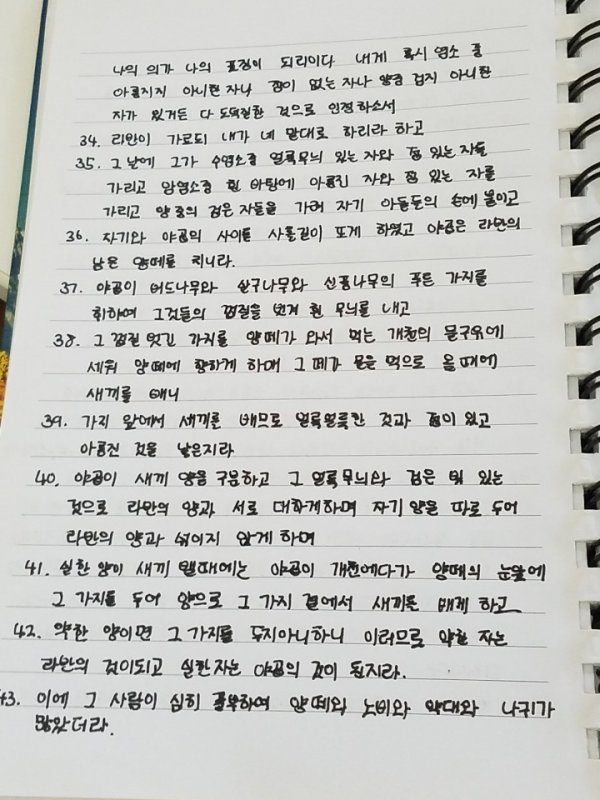 나의 의가 나의 표징이 되리이다 내게 혹시 염소 중
아롱지지 아니한 자나 점이 없는 자나 양중 검지 아니한
자가 있거든 다 도덕질한 것으로 인정하소서
34. 라반이 가로되 내가 네 말대로 하리라 하고
35. 그 날에 그가 수염소중 얼룩무늬 있는 자와 점 있는 자를
가리고 암염소중 흰 바탕에 아롱진 자와 점 있는 자를
가리고 양중의 검은 자들을 가려 자기 아들들의 손에 붙이고
36. 자기와 야곱의 사이를 사흘길이 뜨게 하였고 야곱은 라반의
남은 양떼를 치니라.
37. 야곱이 버드나무와 살구나무와 신풍나무의 푸른 가지를
취하여 그것들의 껍질을 벗겨 흰 무늬를 내고
38. 그 껍질 벗긴 가지를 양떼가 와서 먹는 개천의 물구유에
세워 양떼에 향하게 하매 그 떼가 물을 먹으로 올 때에
새끼를 배니
39. 가지 앞에서 새끼를 배므로 얼룩얼룩한 것과 점이 있고
아롱진 것을 낳은지라
40. 야곱이 새끼 양을 구분하고 그 얼룩무늬와 검은 빛 있는
것으로 라반의 양과 서로 대하게하며 자기 양을 따로 두어
라반의 양과 섞이지 않게 하며
41. 실한 양이 새끼 밸때에는 야곱이 개천에다가 양떼의 눈앞에
그 가지를 두어 양으로 그 가지 곁에서 새끼를 배게 하고
42. 약한 양이면 그 가지를 두지아니하니 이러므로 약한 자는
라반의 것이되고 실한자는 야곱의 것이 된지라.
43. 이에 그 사람이 심히 풍부하여 양떼와 노비와 약대와 나귀가
많았더라.